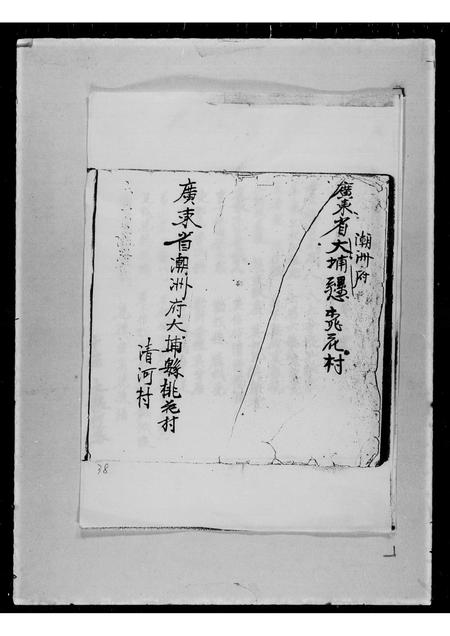 廣東省大埔縣桃花村
潮洲府
廣東省潮洲府大埔縣桃花村
清河村
38